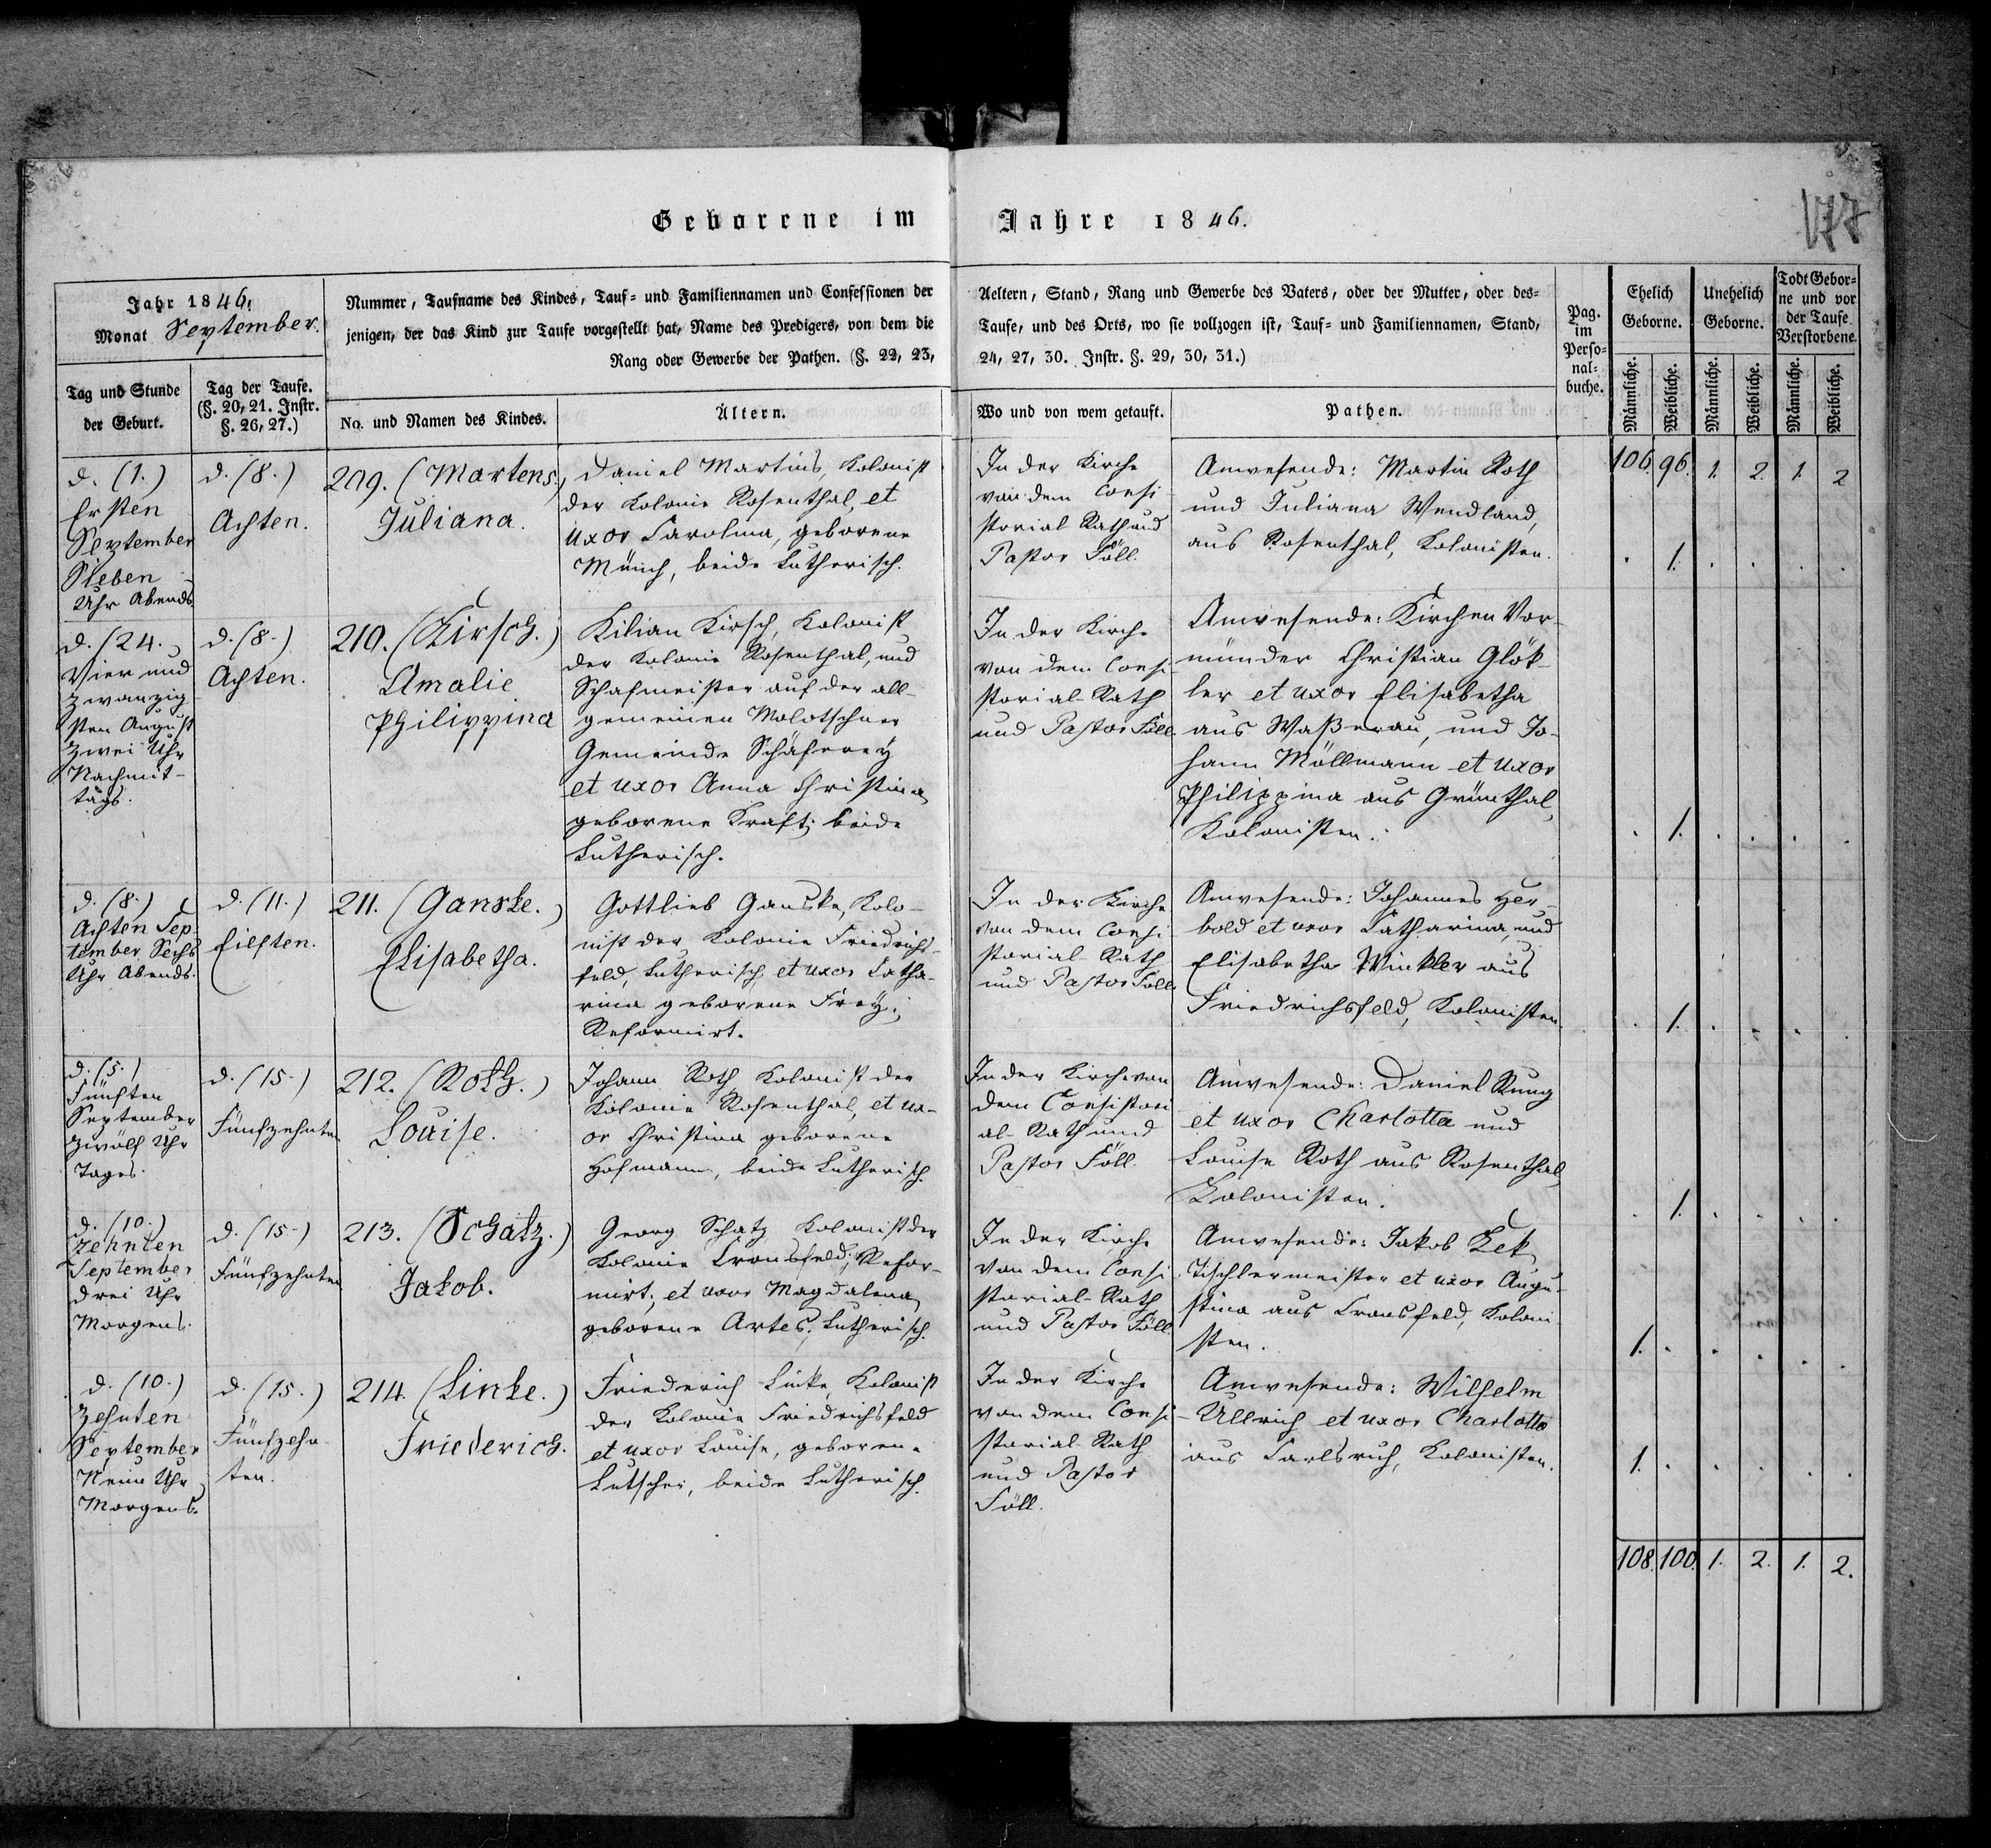 Geborene im Jahre 1846.
177
Jahr 1846.
Monat September.
Nummer, Taufname des Kindes, Tauf- und Familiennamen und Confessionen der
jenigen, der das Kind zur Taufe vorgestellt hat, Name des Predigers, von dem die
Rang oder Gewerbe der Pathen. (§. 22, 23,
Aeltern, Stand, Rang und Gewerbe des Vaters, oder der Mutter, oder des-
Taufe, und des Orts, wo sie vollzogen ist, Tauf- und Familiennamen, Stand,
24, 27, 30. Instr. §. 29, 30, 31.)
Pag.
im
Perso-
nal-
buche.
Ehelich
Geborne.
Unehelich
Geborne.
Todt Gebor-
ne und vor
der Taufe
Verstorbene.
Tag und Stunde
der Geburt.
Tag der Taufe.
(§. 20, 21. Instr.
§. 26, 27.)
No. und Namen des Kindes.
Ältern.
Wo und von wem getauft.
Pathen.
Männliche.
Weibliche.
Männliche.
Weibliche.
Männliche.
Weibliche.
106. 96. 1. 2. 1. 2
d. (1.)
Ersten
September
Sieben
Uhr Abends.
d. (8.)
Achten.
209. (Martens.)
Juliana.
Daniel Martins, Kolonist
der Kolonie Rosenthal, et
uxor Carolina, geborene
Münch, beide Lutherisch.
In der Kirche
von dem Consi
storial-Rath und
Pastor Föll.
Anwesende: Martin Roth
und Juliana Wendland,
aus Rosenthal, Kolonisten.
. 1. . . . .
d. (24.
Vier und
zwanzig-
sten August
Zwei Uhr
Nachmit-
tags.
d. (8.)
Achten.
210. (Kirsch.)
Amalie
Philippina
Kilian Kirsch, Kolonist
der Kolonie Rosenthal, und
Schafmeister auf der all-
gemeinen Molotschner
Gemeinde Schäferey
et uxor Anna Christina,
geborene Kraft; beide
Lutherisch.
In der Kirche
von dem Consi
storial-Rath
und Pastor Föll
Anwesende: Kirchen Vor-
münder Christian Glök-
ler et uxor Elisabetha
aus Waßerau, und Jo-
hann Möllmann et uxor
Philippina aus Grünthal,
Kolonisten.
. 1. . . . .
d. (8.)
Achten Sep-
tember Sechs
Uhr Abends.
d. (11.)
Eilften.
211. (Ganske.)
Elisabetha.
Gottlieb Ganske, Kolo-
nist der Kolonie Friedrichs-
feld, Lutherisch, et uxor Catha-
rina geborene Frey;
Reformirt.
In der Kirche
von dem Consi
storial-Rath
und Pastor Föll.
Anwesende: Johannes Her-
bold et uxor Catharina, und
Elisabetha Winkler aus
Friedrichsfeld, Kolonisten.
. 1. . . . .
d. (5.)
Fünften
September
Zwölf Uhr
Tages.
d. (15.)
Fünfzehnten
212. (Roth.)
Louise.
Johann Roth, Kolonist der
Kolonie Rosenthal, et ux-
or Christina geborene
Hofmann, beide Lutherisch.
In der Kirche von
dem Consistori
al-Rath und
Pastor Föll.
Anwesende: Daniel Rung
et uxor Charlotta und
Louise Roth aus Rosenthal,
Kolonisten.
. 1. . . . .
d. (10.)
Zehnten
September
drei Uhr
Morgens.
d. (15.)
Fünfzehnten
213. (Schatz.)
Jakob.
Georg Schatz Kolonist der
Kolonie Cronsfeld, Refor-
mirt; et uxor Magdalena,
geborene Artes, Lutherisch.
In der Kirche
von dem Consi
storial-Rath
und Pastor Föll.
Anwesende: Jakob Kek,
Tischlermeister et uxor Augu-
stina aus Cronsfeld, Koloni
sten.
1. . . . . .
d. (10.)
Zehnten
September
Neun Uhr
Morgens.
d. (15.)
Fünfzehn-
ten.
214. (Linke.)
Friederich.
Friederich Linke, Kolonist
der Kolonie Friedrichsfeld
et uxor Louise, geborene
Lutscher, beide Lutherisch.
In der Kirche
von dem Consi-
storial-Rath
und Pastor
Föll.
Anwesende: Wilhelm
Ullrich et uxor Charlotta
aus Carlsruh, Kolonisten.
1. . . . . .
108. 100. 1. 2. 1. 2.